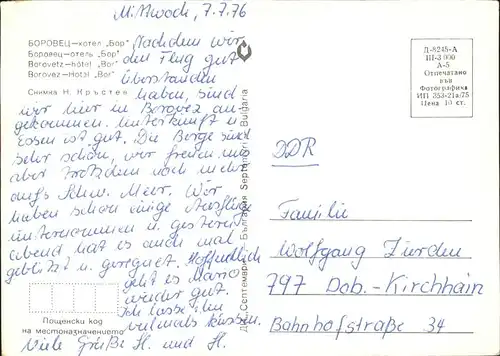 Mittwoch, 7.7.76
БОРОВЕЦ–хотел „Бор"
Боровец–отель „Бор"
Borovetz–hôtel „Bor"
Borovez–Hotel „Bor"
Снимка Н. Кръстев
Nachdem wir
den Flug gut
überstanden
haben, sind
wir hier in Borovez an-
gekommen. Unterkunft u.
Essen ist gut. Die Berge sind
sehr schön, wir freuen uns
aber trotzdem noch mehr
aufs Schw. Meer. Wir
haben schon einige Ausflüge
unternommen u. gestern
abend hat es auch mal
geblitzt u. geregnet. Hoffentlich
geht es Mario
wieder gut.
Ich lasse ihn
vielmals küssen.
Viele Grüße H. und H.
Пощенски код
на местоназначението
ДП „Септември" България Septemvri Bulgaria
Д-8245-А
III-3 000
А-5
Отпечатано
във
Фотографика
ИП 353-21а/75
Цена 10 ст.
DDR
Familie
Wolfgang
797 Dob.-Kirchhain
Bahnhofstraße 34